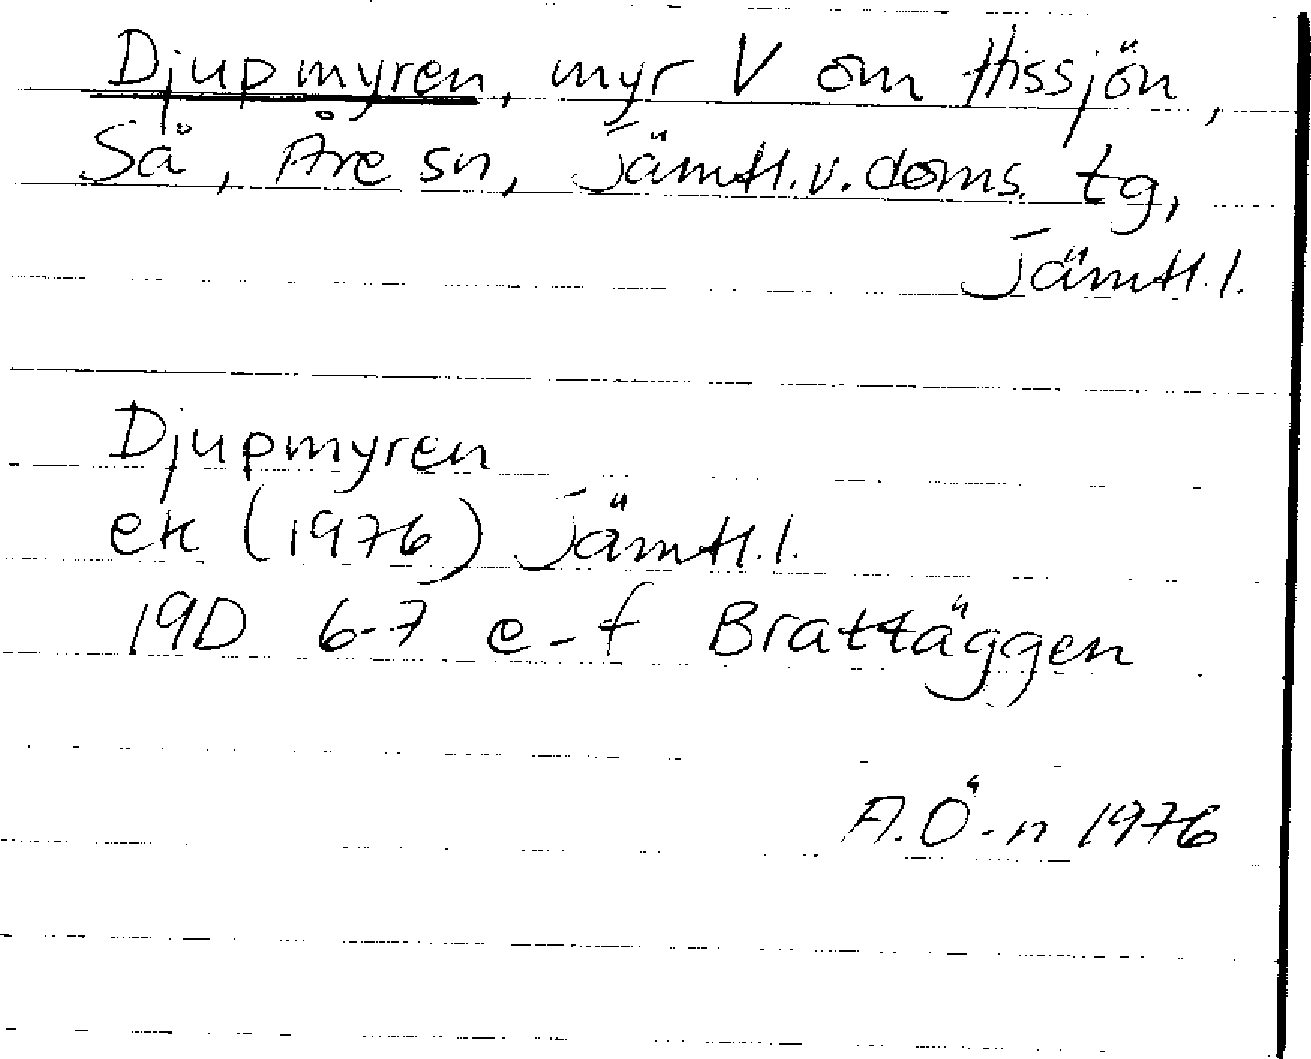 Djupmyren, myr V om Hissjön,
Så, Åre sn, Jämtl.v.doms. tg,
Jämtl.l.
Djupmyren
ek (1976) Jämtl.l.
19D 6-7 e-f Brattäggen
A.Ö-n 1976